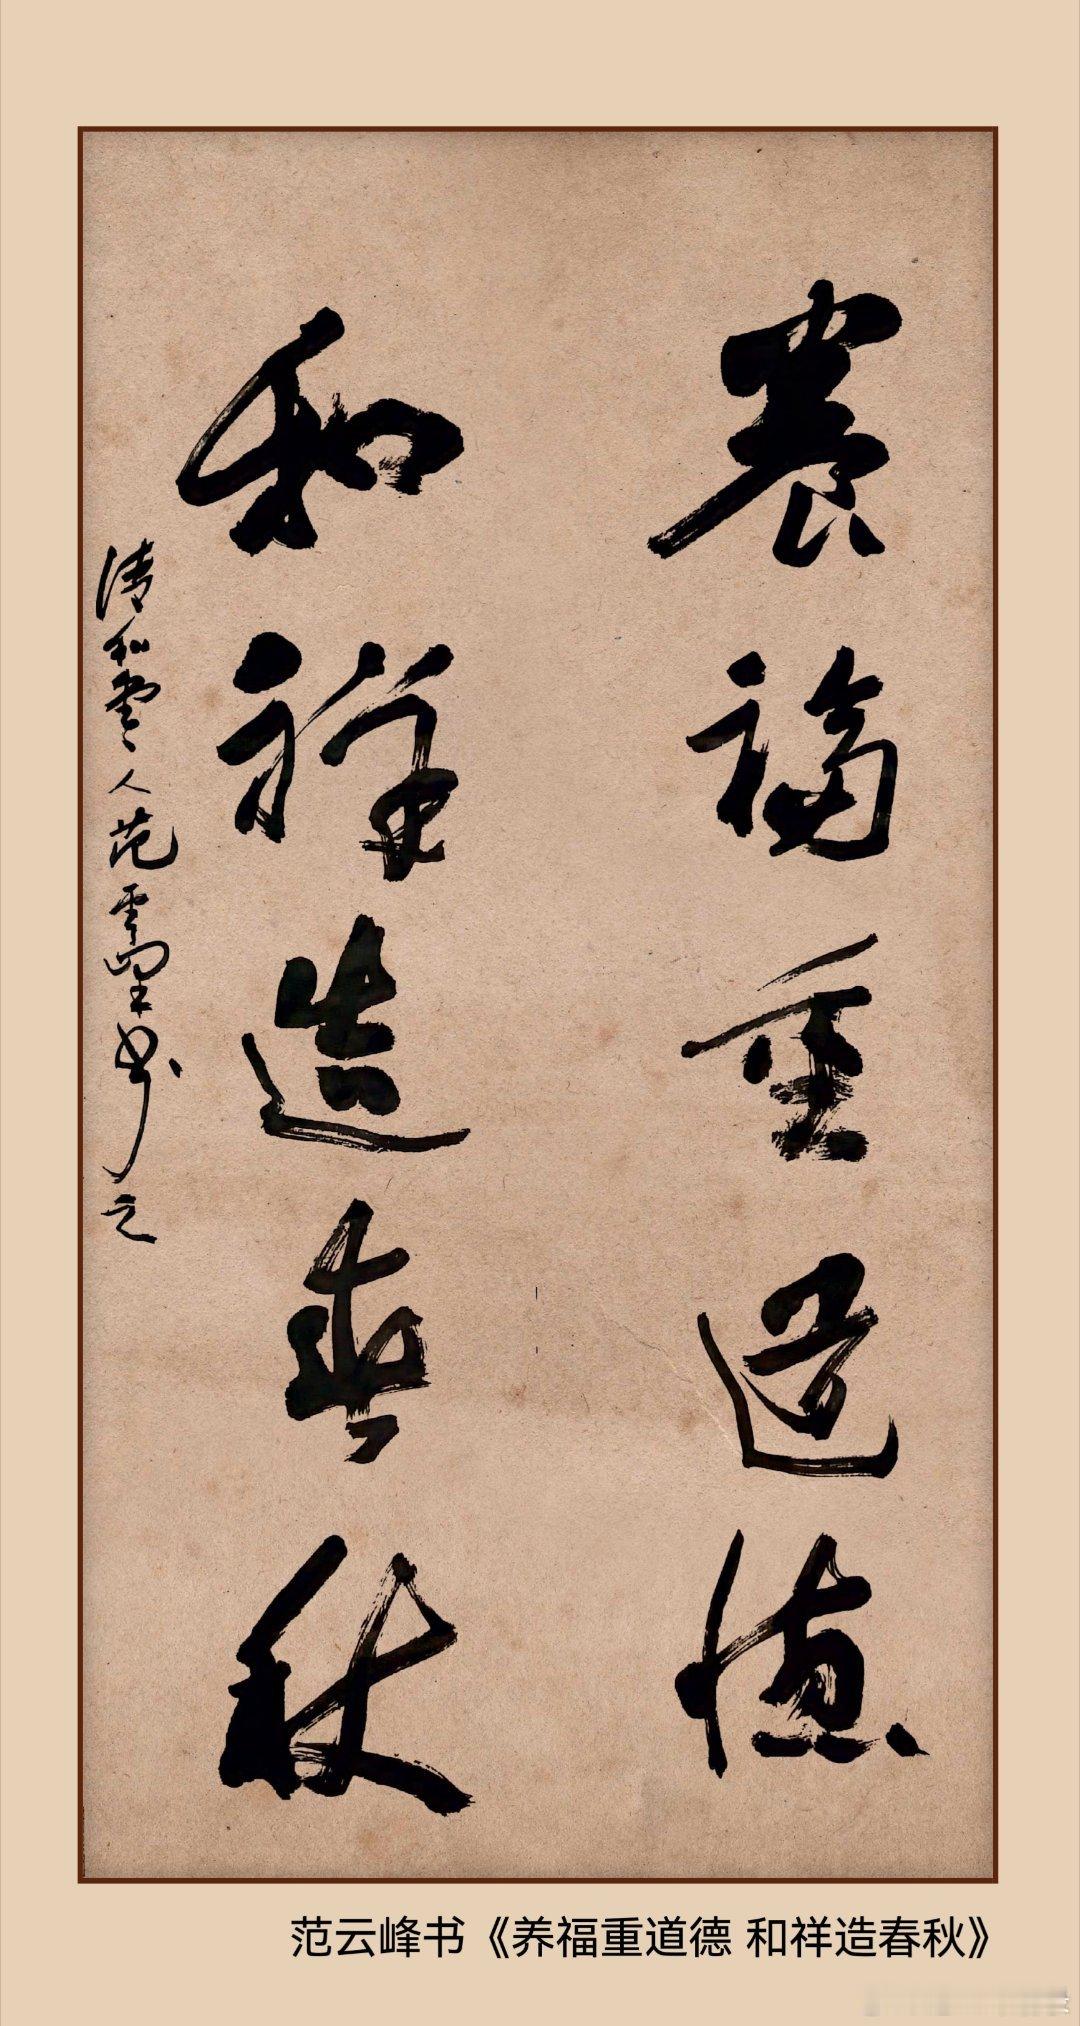 養福重道德
和祥造春秋
清和堂人范雲峰书之
范云峰书《养福重道德 和祥造春秋》